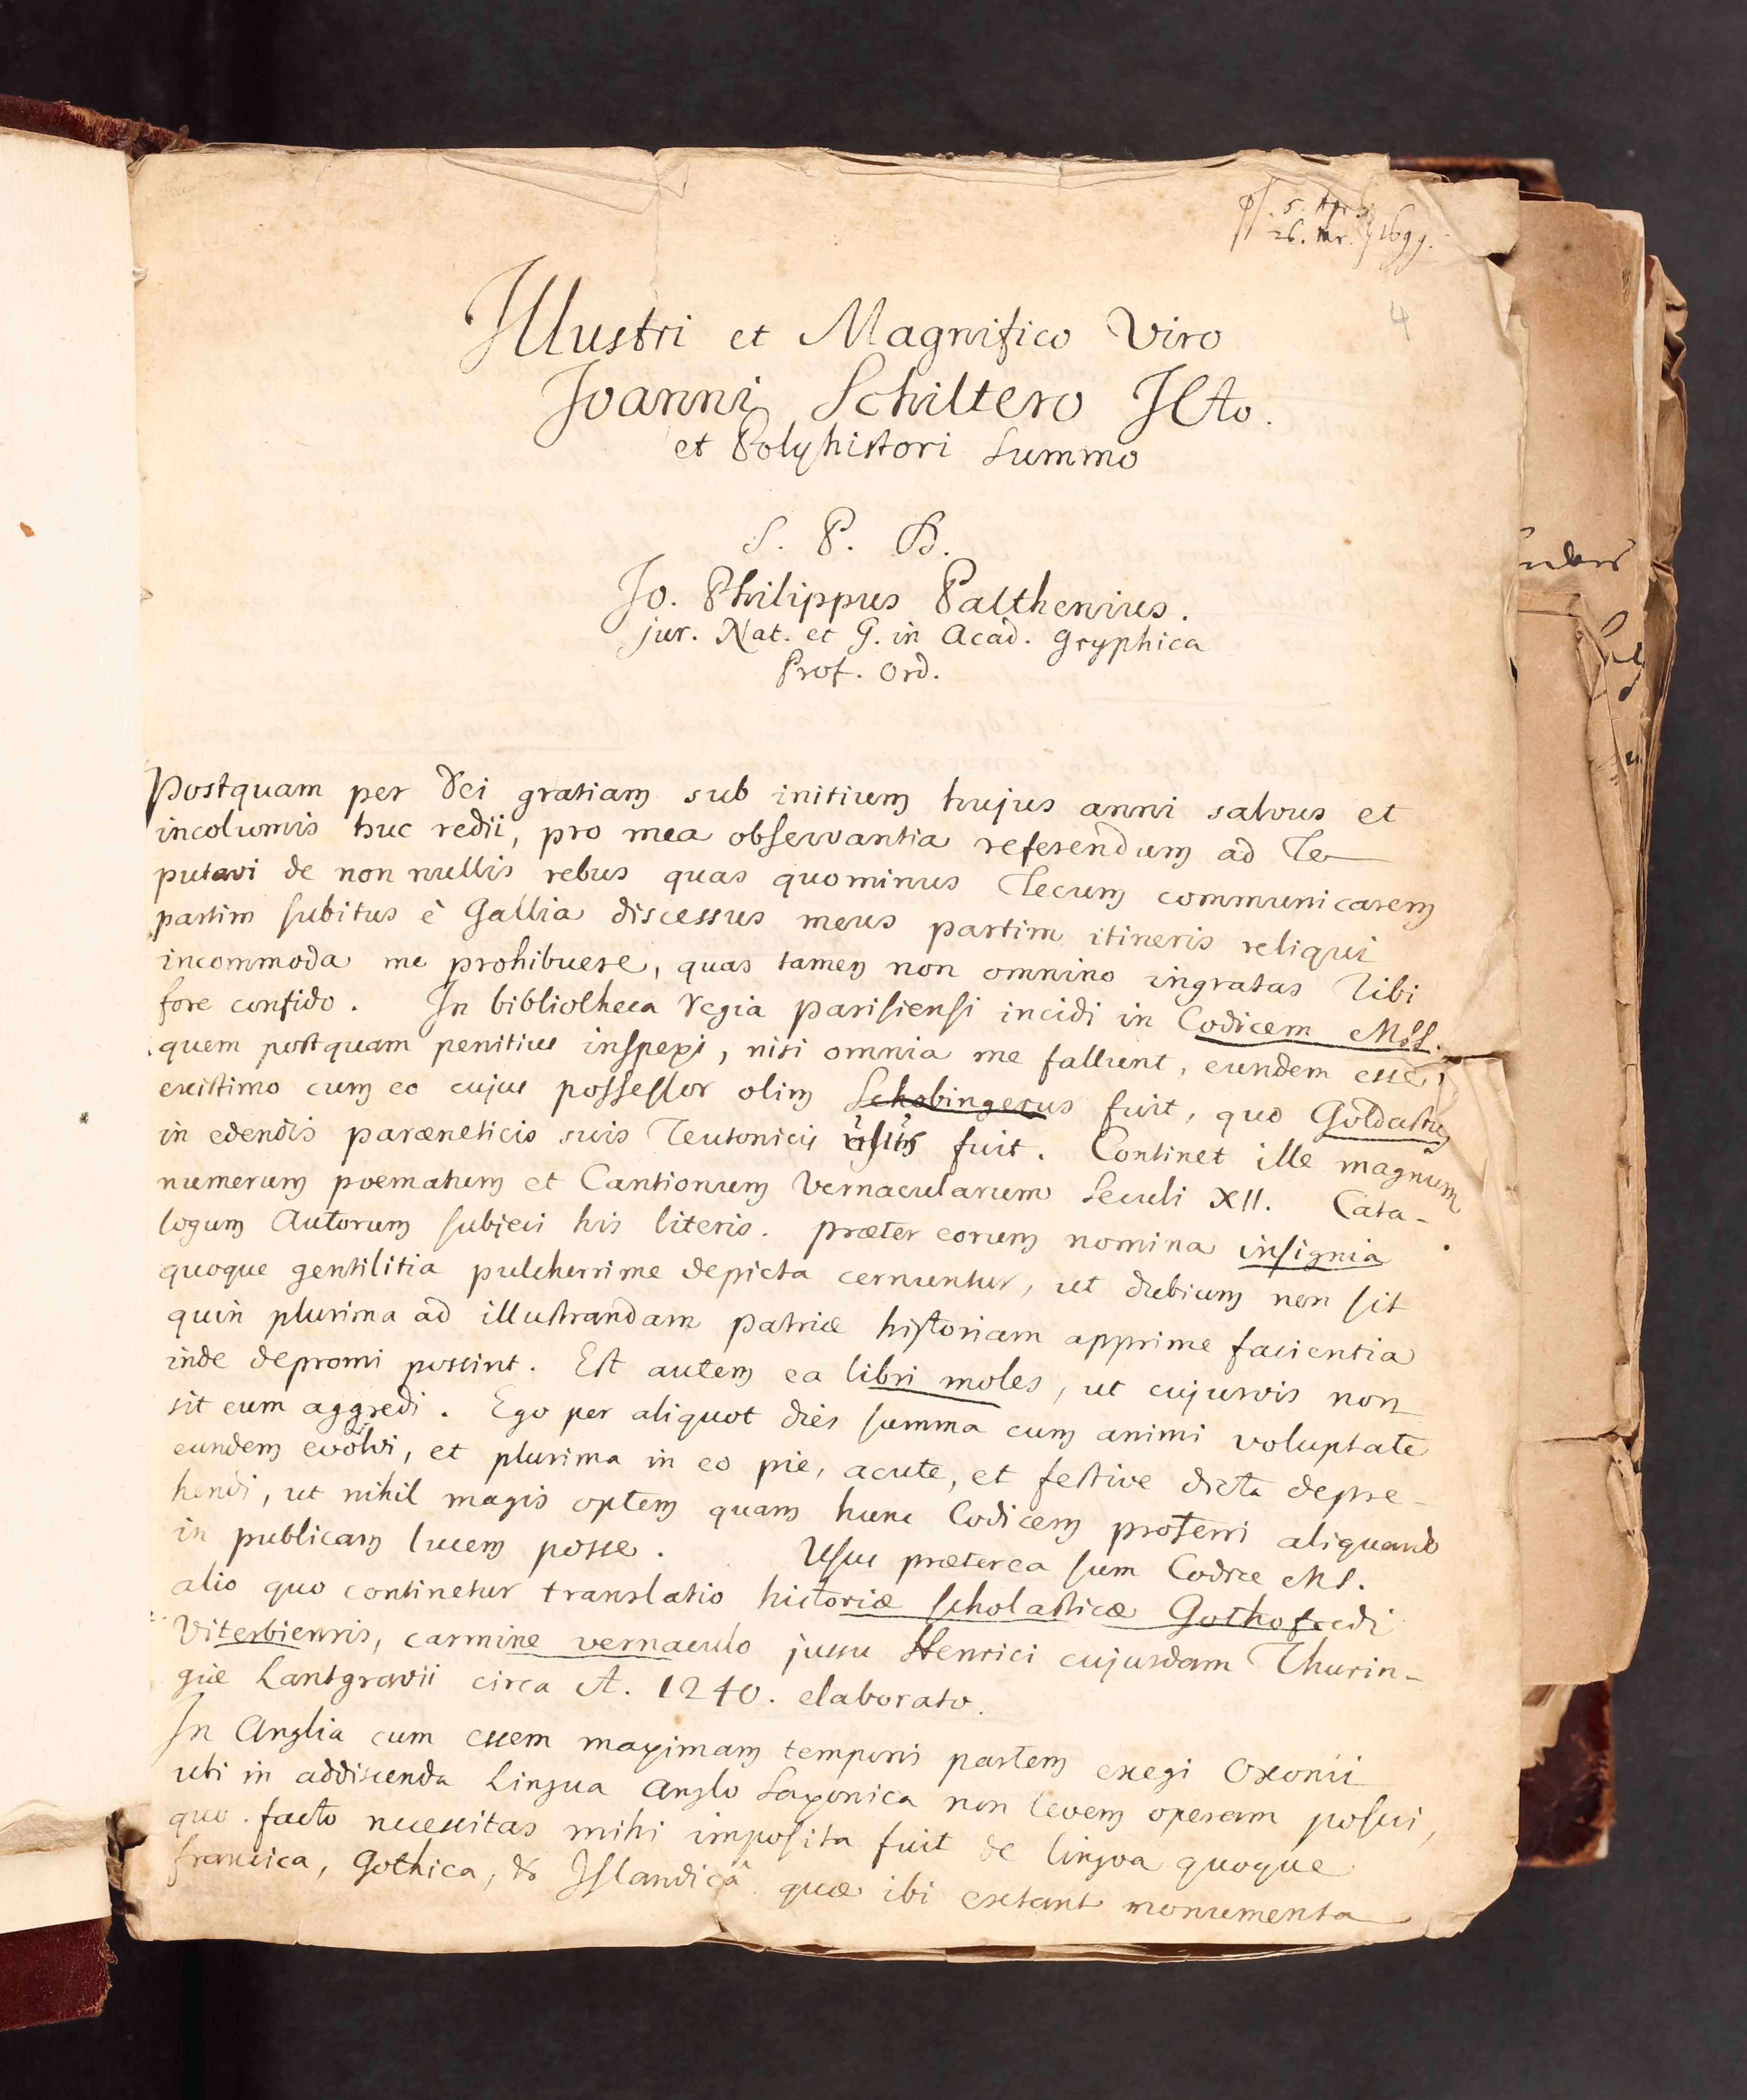 5. Apr.
26. Mr. 1699.
4
Illustri et Magnifico Viro
Joanni Schiltero JCto.
et Polyhistori summo
S. P. D.
Jo. Philippus Palthenius.
jur. Nat. et G. in Acad. Gryphica
Prof. Ord.
Postquam per Dei gratiam sub initium hujus anni salvus et
incolumis huc redii, pro mea observantia referendum ad Te
putavi de non nullis rebus quas quominus Tecum communicarem
partim subitus è Gallia discessus meus partim itineris reliqui
incommoda me prohibuere, quas tamen non omnino ingratas Tibi
fore confido. In bibliotheca regia parisiensi incidi in Codicem MSS.
quem postquam penitius inspexi, nisi omnia me fallunt, eundem esse
existimo cum eo cujus possessor olim Schobingerus fuit, quo Goldastus
in edendis paræneticis suis Teutonicis usus fuit. Continet ille magnum
numerum poematum et Cantionum vernacularum seculi XII. Cata-
logum Autorum subjeci his literis. præter eorum nomina insignia
quoque gentilitia pulcherrime depicta cernuntur, ut dubium non sit
quin plurima ad illustrandam patriæ historiam apprime facientia
inde depromi possint. Est autem ea libri moles, ut cujusvis non
sit eum aggredi. Ego per aliquot dies summa cum animi voluptate
eundem evolvi, et plurima in eo pie, acute, et festive dicta depre-
hendi, ut nihil magis optem quam hunc Codicem proferri aliquando
in publicam lucem posse. Usus præterea sum Codice MS.
alio quo continetur translatio historiæ scholasticæ Gothofredi
Viterbiensis, carmine vernaculo jussu Henrici cujusdam Thurin-
giæ Lantgravii circa A. 1240. elaborato.
In Anglia cum essem maximam temporis partem exegi Oxonii
ubi in addiscenda Lingua Anglo Saxonica non levem operam posui,
quo facto necessitas mihi imposita fuit de lingva quoque
francica, Gothica, & Islandicâ quæ ibi extant monumenta